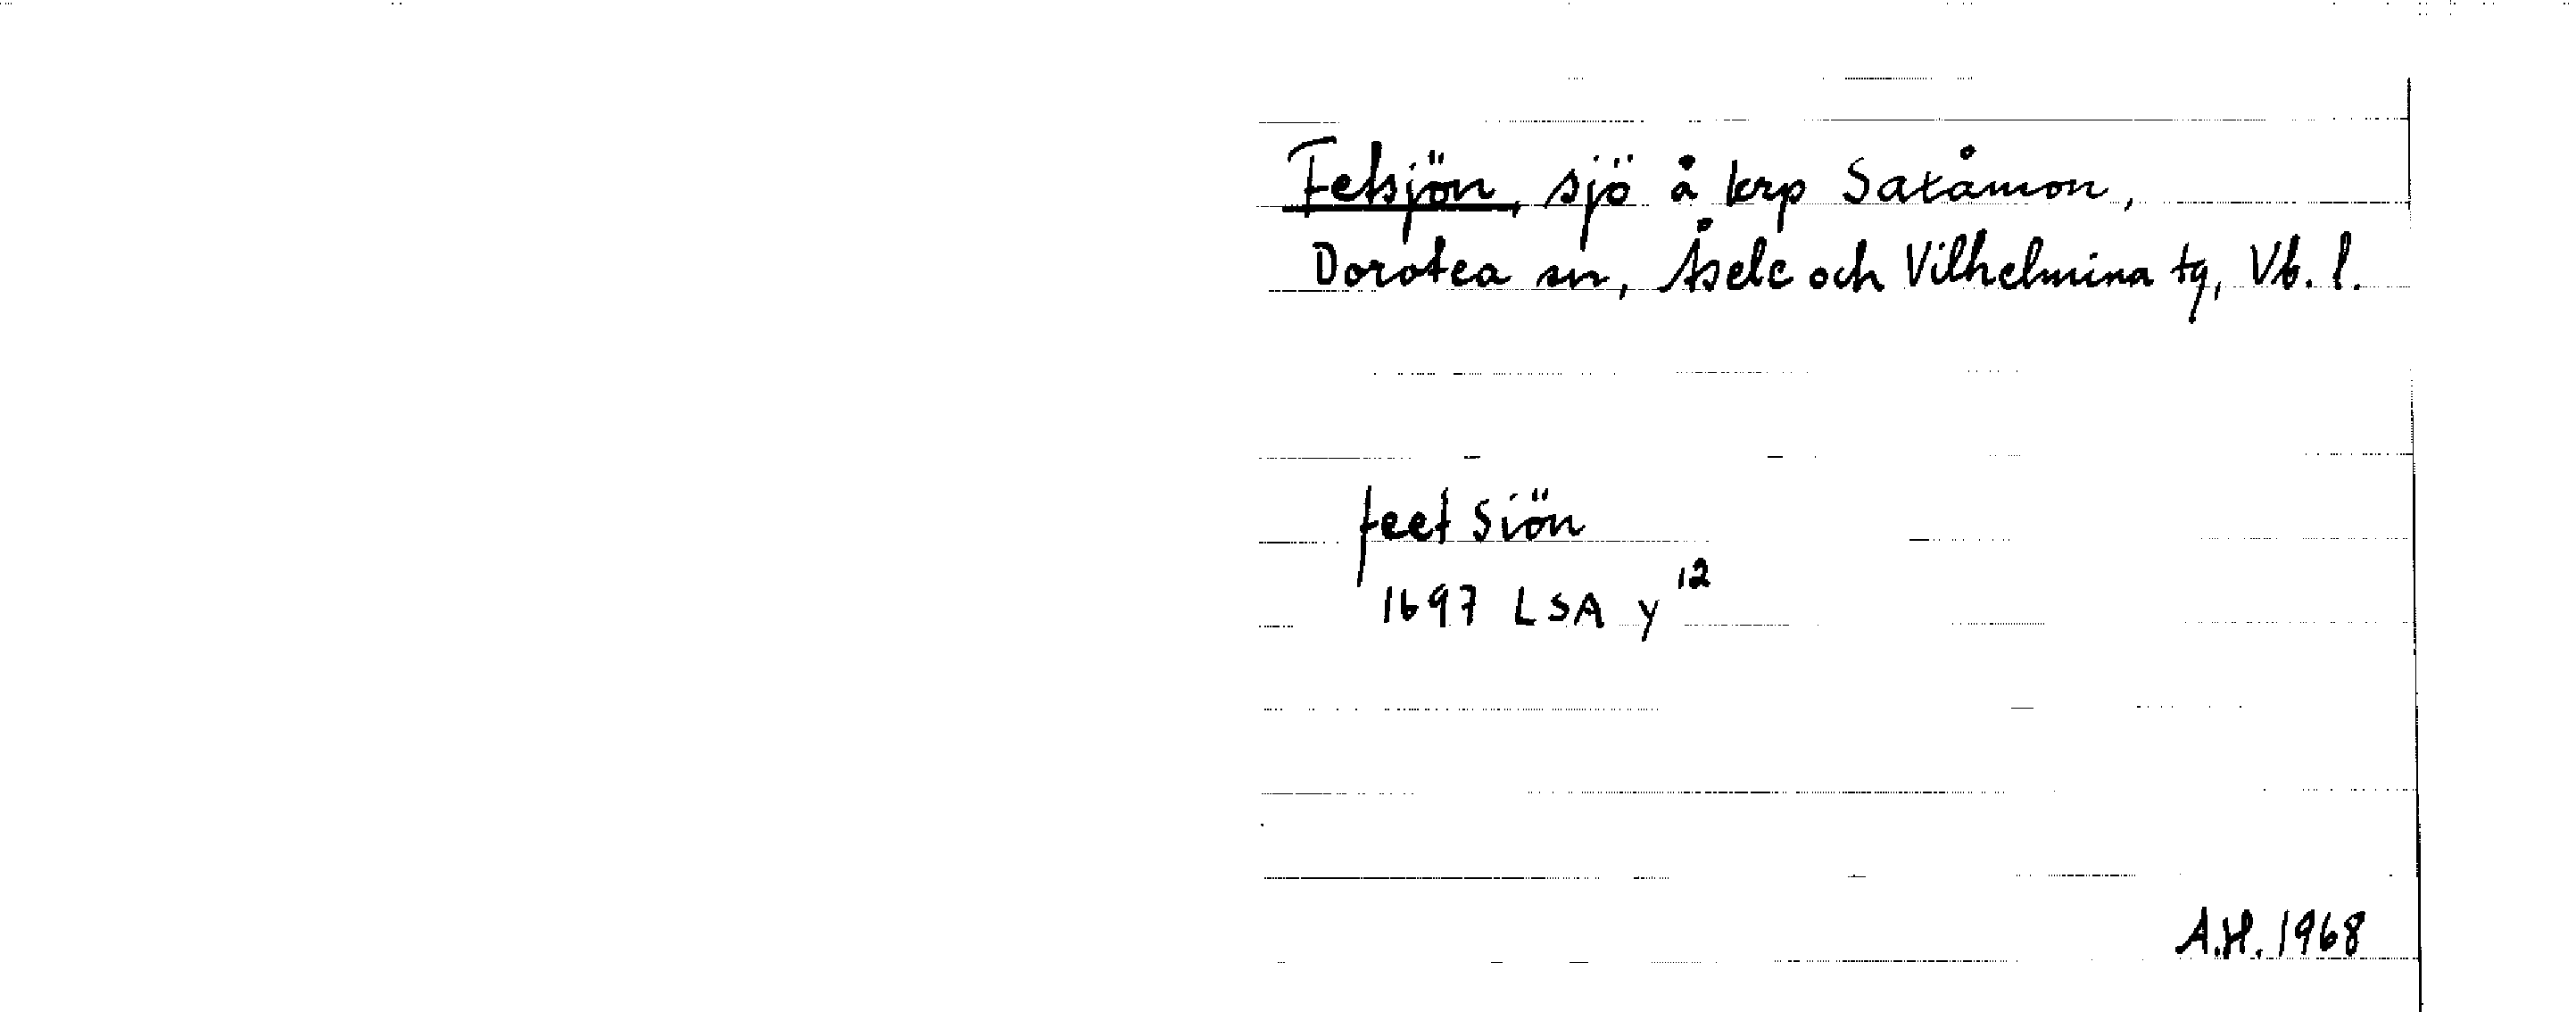 Fetsjön, sjö å krp Saxåmon,
Dorotea sn, Åsele och Vilhelmina tg, Vb. l.
feet Siön
1697 LSA y 12
A.H. 1968